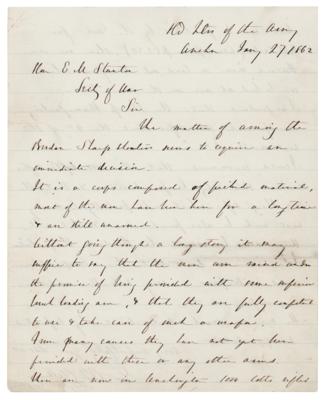 Hd Qrs of the Army
Jany 27 1862
Hon E M Stanton
Secty of War
Sir
The matter of arming the
Berdan Sharpshooters seems to require an
immediate decision.
It is a corps composed of picked material,
most of the men have been here for a long time
& are still unarmed.
Without going through a long story it may
suffice to say that the men were raised under
the promise of being provided with some superior
breech loading arm, & that they are fully competent
to use & take care of such a weapon.
From many causes they have not yet been
provided with these or any other arms.
There are now in Washington 1000 Colts rifles